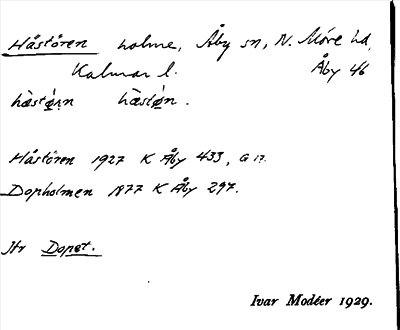 Håstören holme, Åby sn, N. Möre hd,
Kalmar l. Åby 46
hàstǿnn hàstǿn.
Håstören 1927 K Åby 433, G 17.
Dopholmen 1877 K Åby 297.
Hr Dopet.
Ivar Modéer 1929.